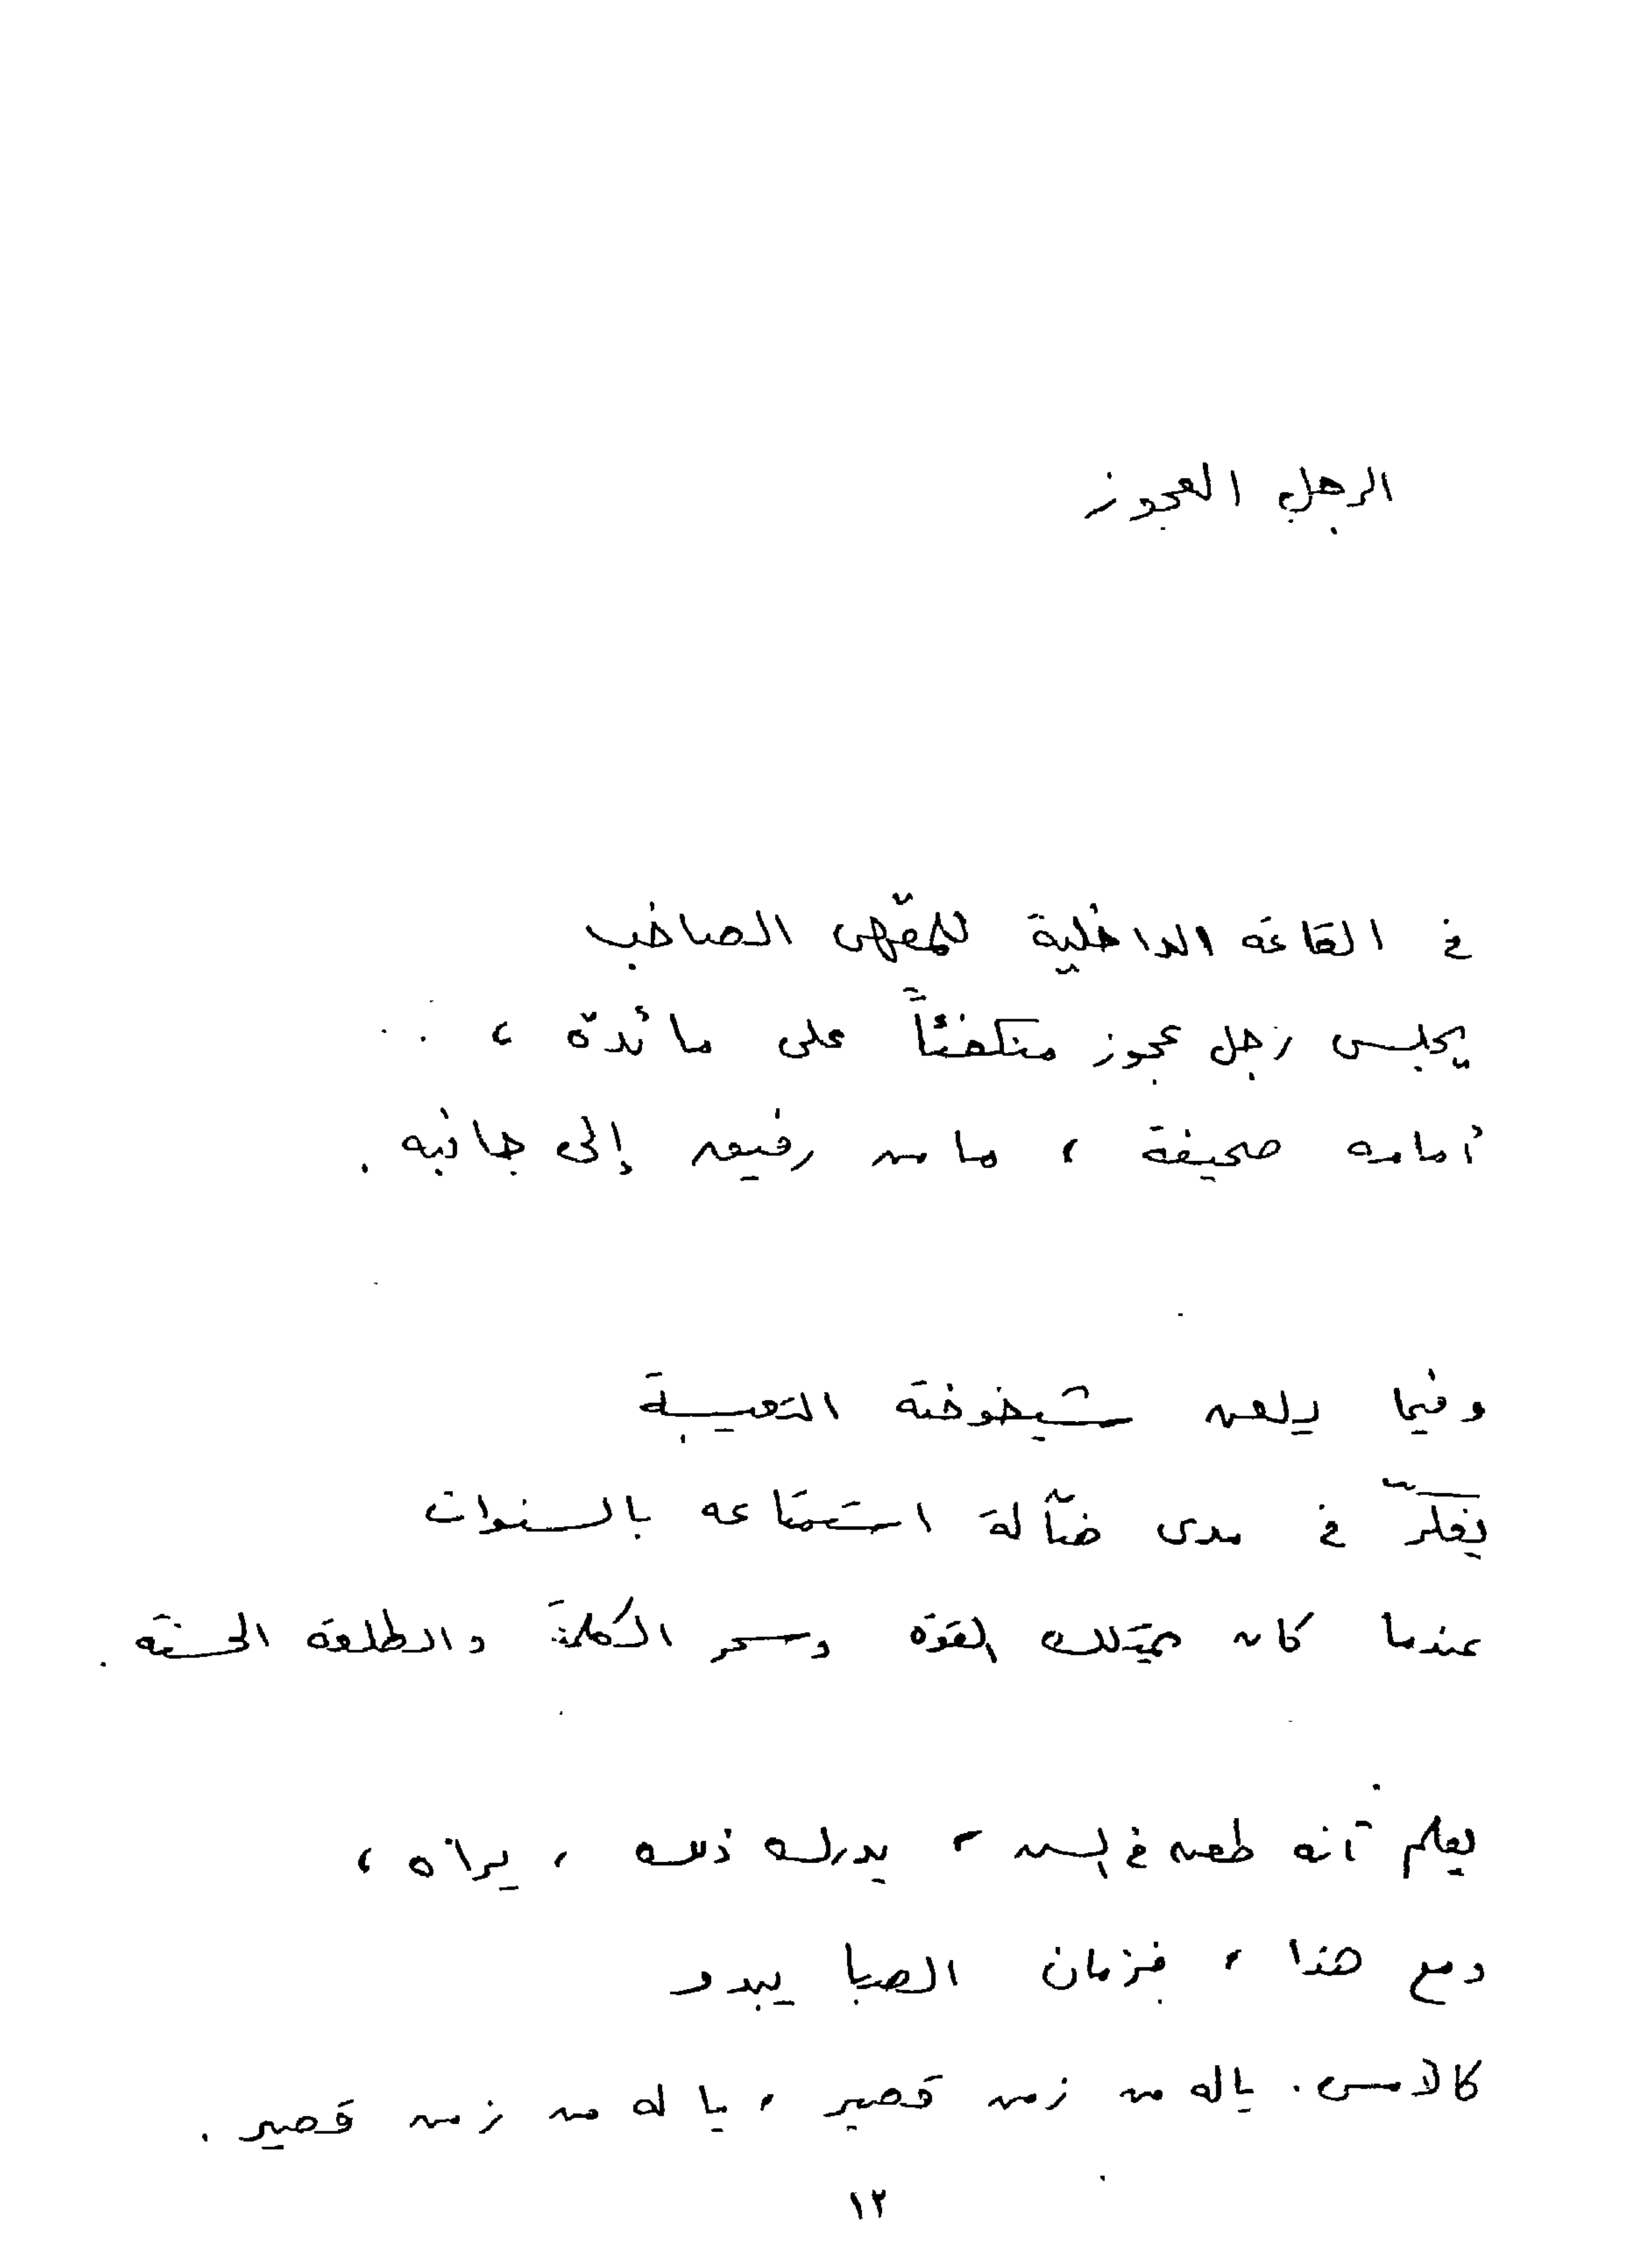 الرجل العجوز
في القاعة الداخلية للمقهى الصاخب
يجلس رجل عجوز منكفئاً على مائدة ،
أمامه صحيفة ، ما من رفيق إلى جانبه .
وفيما يلعن شيخوخته التعيسة
يفكّر في مدى ضآلة استمتاعه بالسنوات
عندما كان يمتلك القوة وسحر الكلمة والطلعة الحسنة .
يعلم أنه طعن في السن ، يدرك ذلك ، يراه ،
ومع هذا ، فزمان الصبا يبدو
كالأمس . ياله من زمن قصير ، يا له من زمن قصير .
١٢